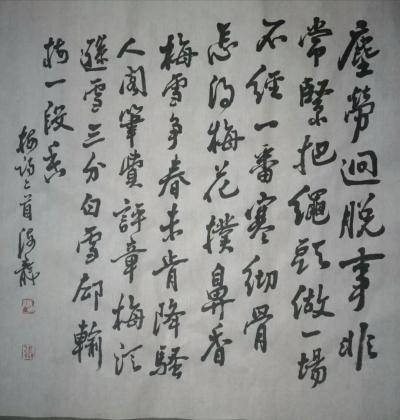 塵勞迥脫事非
常緊把繩頭做一場
不經一番寒彻骨
怎得梅花撲鼻香
梅雪争春未肯降騷
人閣筆費評章梅须
遜雪三分白雪却輸
梅一段香
梅詩二首